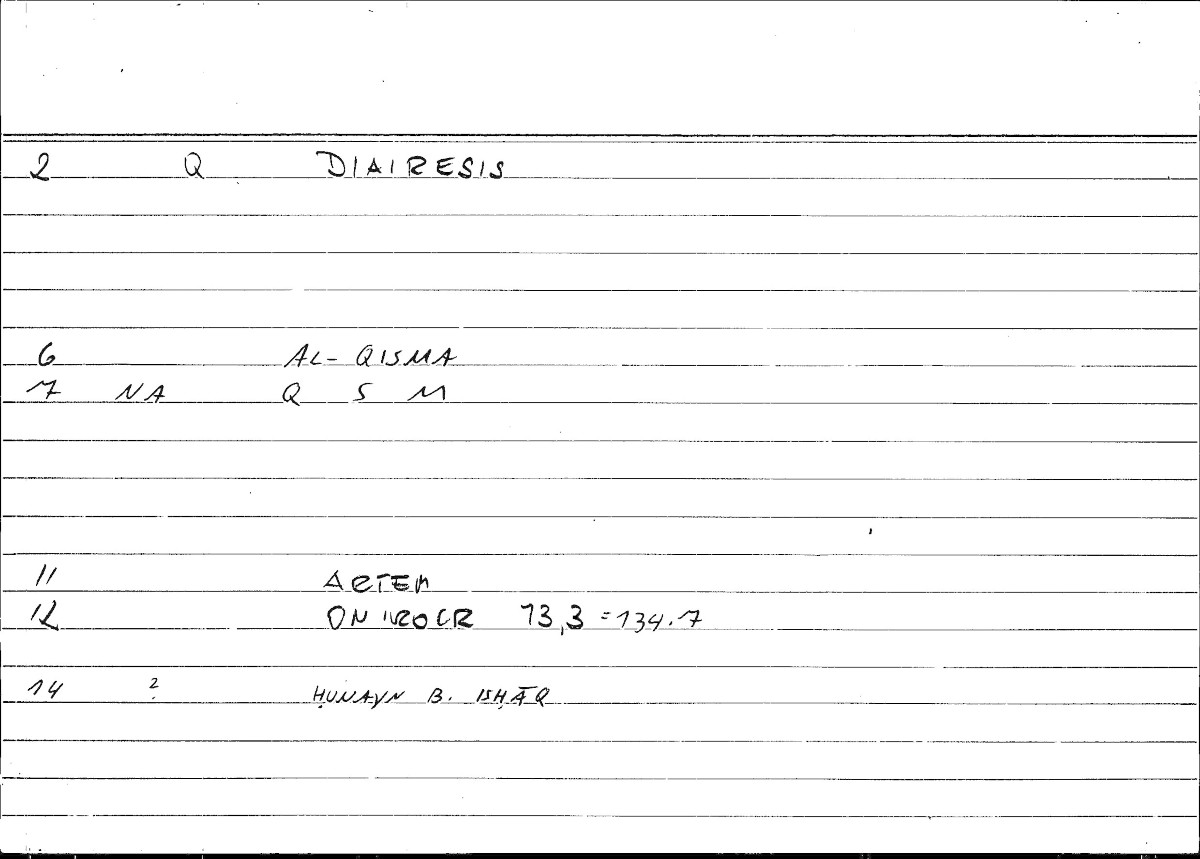 2 Q DIAIRESIS
6 AL-QISMA
7 NA Q S M
11 ARTEM
12 ONIROCR 13,3 = 134.7
14 ? ḤUNAYN B. ISḤĀQ